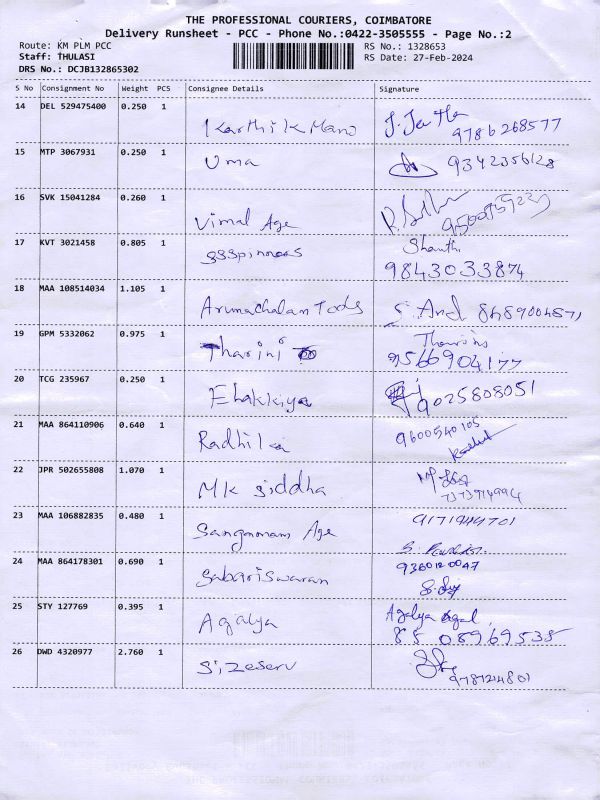 THE PROFESSIONAL COURIERS, COIMBATORE
Delivery Runsheet - PCC - Phone No.:0422-3505555 - Page No.:2
Route: KM PLM PCC RS No.: 1328653
Staff: THULASI RS Date: 27-Feb-2024
DRS No.: DCJB132865302
S No Consignment No Weight PCS Consignee Details Signature
14 DEL 529475400 0.250 1
Karthik Mano 9786268577
15 MTP 3067931 0.250 1
Uma 9342356128
16 SVK 15041284 0.260 1
Vimal Age
17 KVT 3021458 0.805 1 Shanthi
SSSpinnees 9843033874
18 MAA 108514034 1.105 1
Arunachalam Tods S. And 8489004571
19 GPM 5332062 0.975 1
Tharini 9566904177
20 TCG 235967 0.250 1
Elakkiya 9025808051
21 MAA 864110906 0.640 1 9600540105
Radhika
22 JPR 502655808 1.070 1
MK Siddha
23 MAA 106882835 0.480 1
Age
24 MAA 864178301 0.690 1 9360120047
Sabariswaran
25 STY 127769 0.395 1 Agalya
Agalya 8508969535
26 DWD 4320977 2.760 1
Sizeserv